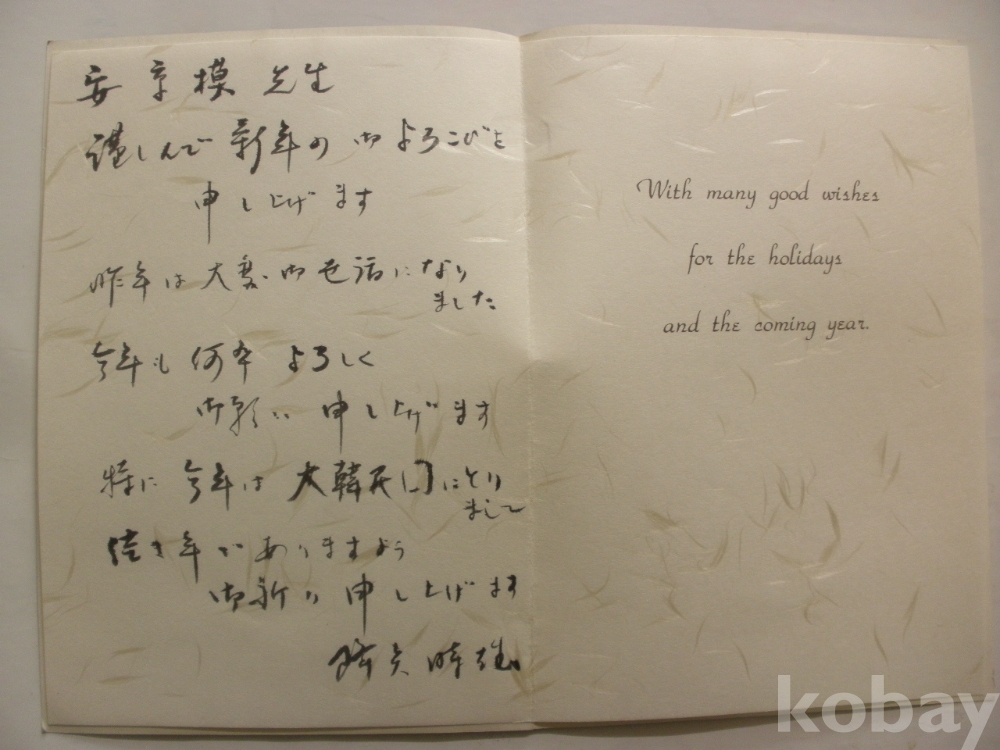 安京模 先生
謹しんで新年の御よろこびを
申し上げます
昨年は大変御世話になり
ました
今年も何卒よろしく
御願い申し上げます
特に今年は大韓民国にとり
まして
佳き年でありますよう
御祈り申し上げます
時雄
With many good wishes
for the holidays
and the coming year.
kobay